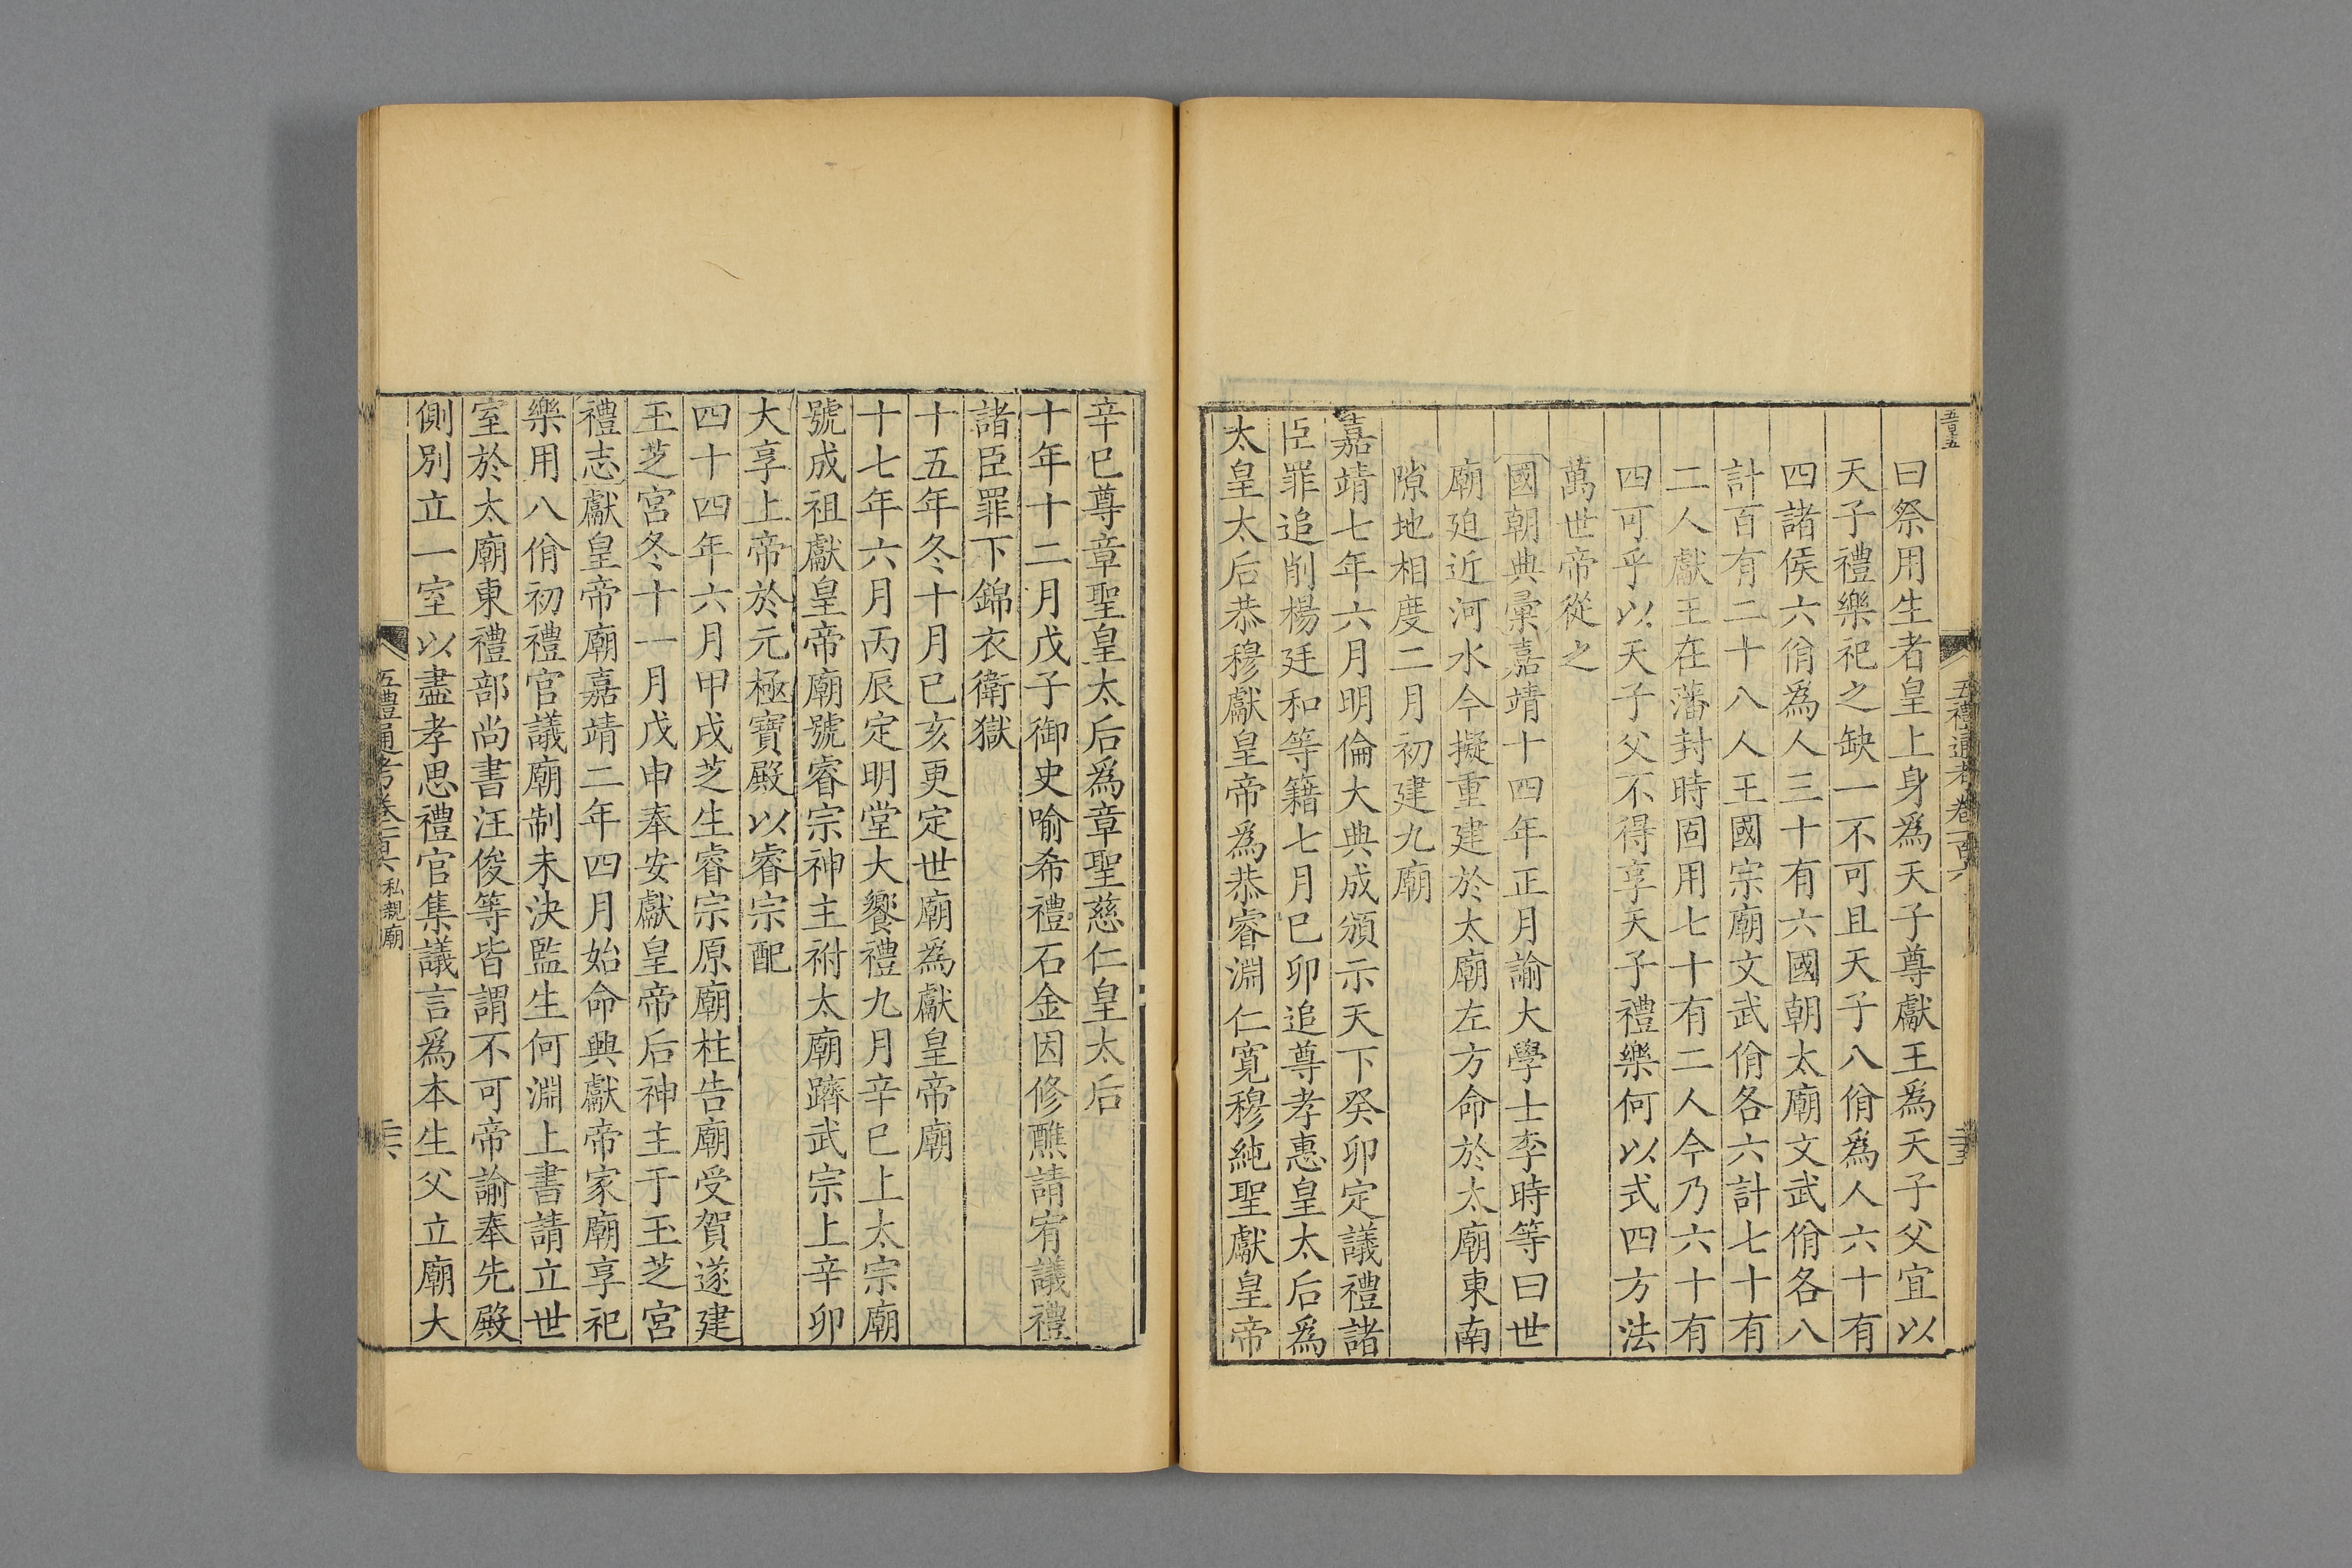 五禮通考卷一百六
曰祭用生者皇上身爲天子尊獻王爲天子父宜以
天子禮樂祀之缺一不可且天子八佾爲人六十有
四諸侯六佾爲人三十有六國朝太廟文武佾各八
計百有二十八人王國宗廟文武佾各六計七十有
二人獻王在藩封時固用七十有二人今乃六十有
四可乎以天子父不得享天子禮樂何以式四方法
萬世帝從之
國朝典彙嘉靖十四年正月諭大學士李時等曰世
廟廹近河水今擬重建於太廟左方命於太廟東南
隙地相度二月初建九廟
嘉靖七年六月明倫大典成頒示天下癸卯定議禮諸
臣罪追削楊廷和等籍七月巳卯追尊孝惠皇太后爲
太皇太后恭穆獻皇帝爲恭睿淵仁寛穆純聖獻皇帝
辛巳尊章聖皇太后爲章聖慈仁皇太后
十年十二月戊子御史喻希禮石金因修醮請宥議禮
諸臣罪下錦衣衛獄
十五年冬十月巳亥更定世廟爲獻皇帝廟
十七年六月丙辰定明堂大饗禮九月辛巳上太宗廟
號成祖獻皇帝廟號睿宗神主祔太廟躋武宗上辛卯
大享上帝於元極寶殿以睿宗配
四十四年六月甲戌芝生睿宗原廟柱告廟受賀遂建
玉芝宮冬十一月戊申奉安獻皇帝后神主于玉芝宮
禮志獻皇帝廟嘉靖二年四月始命興獻帝家廟享祀
樂用八佾初禮官議廟制未決監生何淵上書請立世
室於太廟東禮部尚書汪俊等皆謂不可帝諭奉先殿
側別立一室以盡孝思禮官集議言爲本生父立廟大
五禮通考卷一百六 私親廟